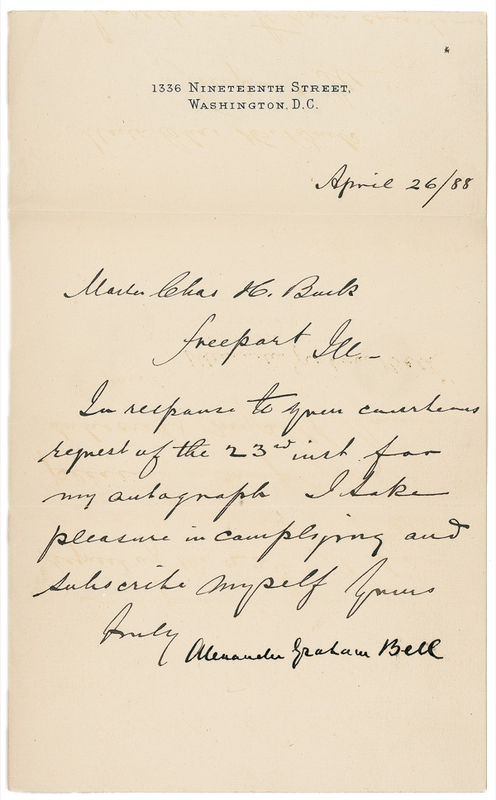 1336 Nineteenth Street,
Washington, D.C.
April 26/88
Master Chas H. Buck
Freeport Ill–
In response to your courteous
request of the 23rd inst for
my autograph I take
pleasure in complying and
subscribe myself Yours
truly
Alexander Graham Bell